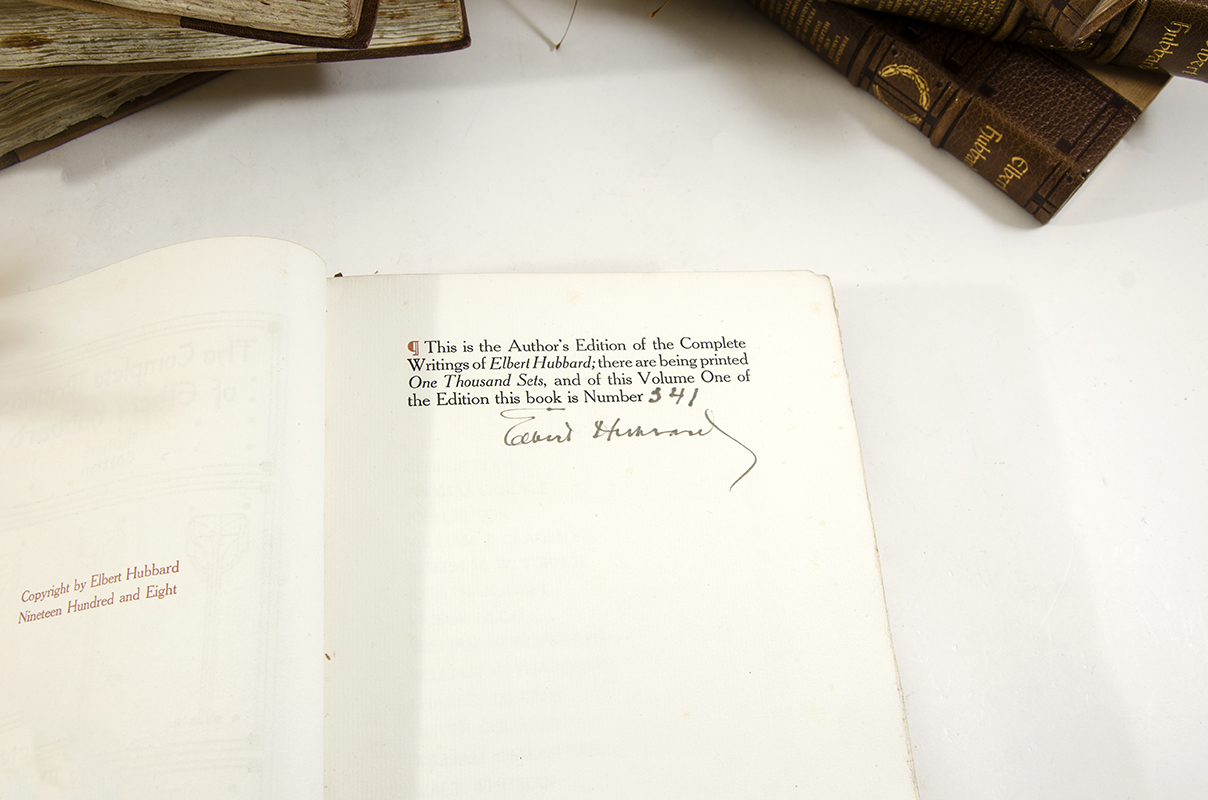 Elbert
Hubbar
Elbert
Hubbar
The Complete
of Elbert
Copyright by Elbert Hubbard
Nineteen Hundred and Eight
¶ This is the Author's Edition of the Complete
Writings of Elbert Hubbard; there are being printed
One Thousand Sets, and of this Volume One of
the Edition this book is Number 341
Elbert Hubbard